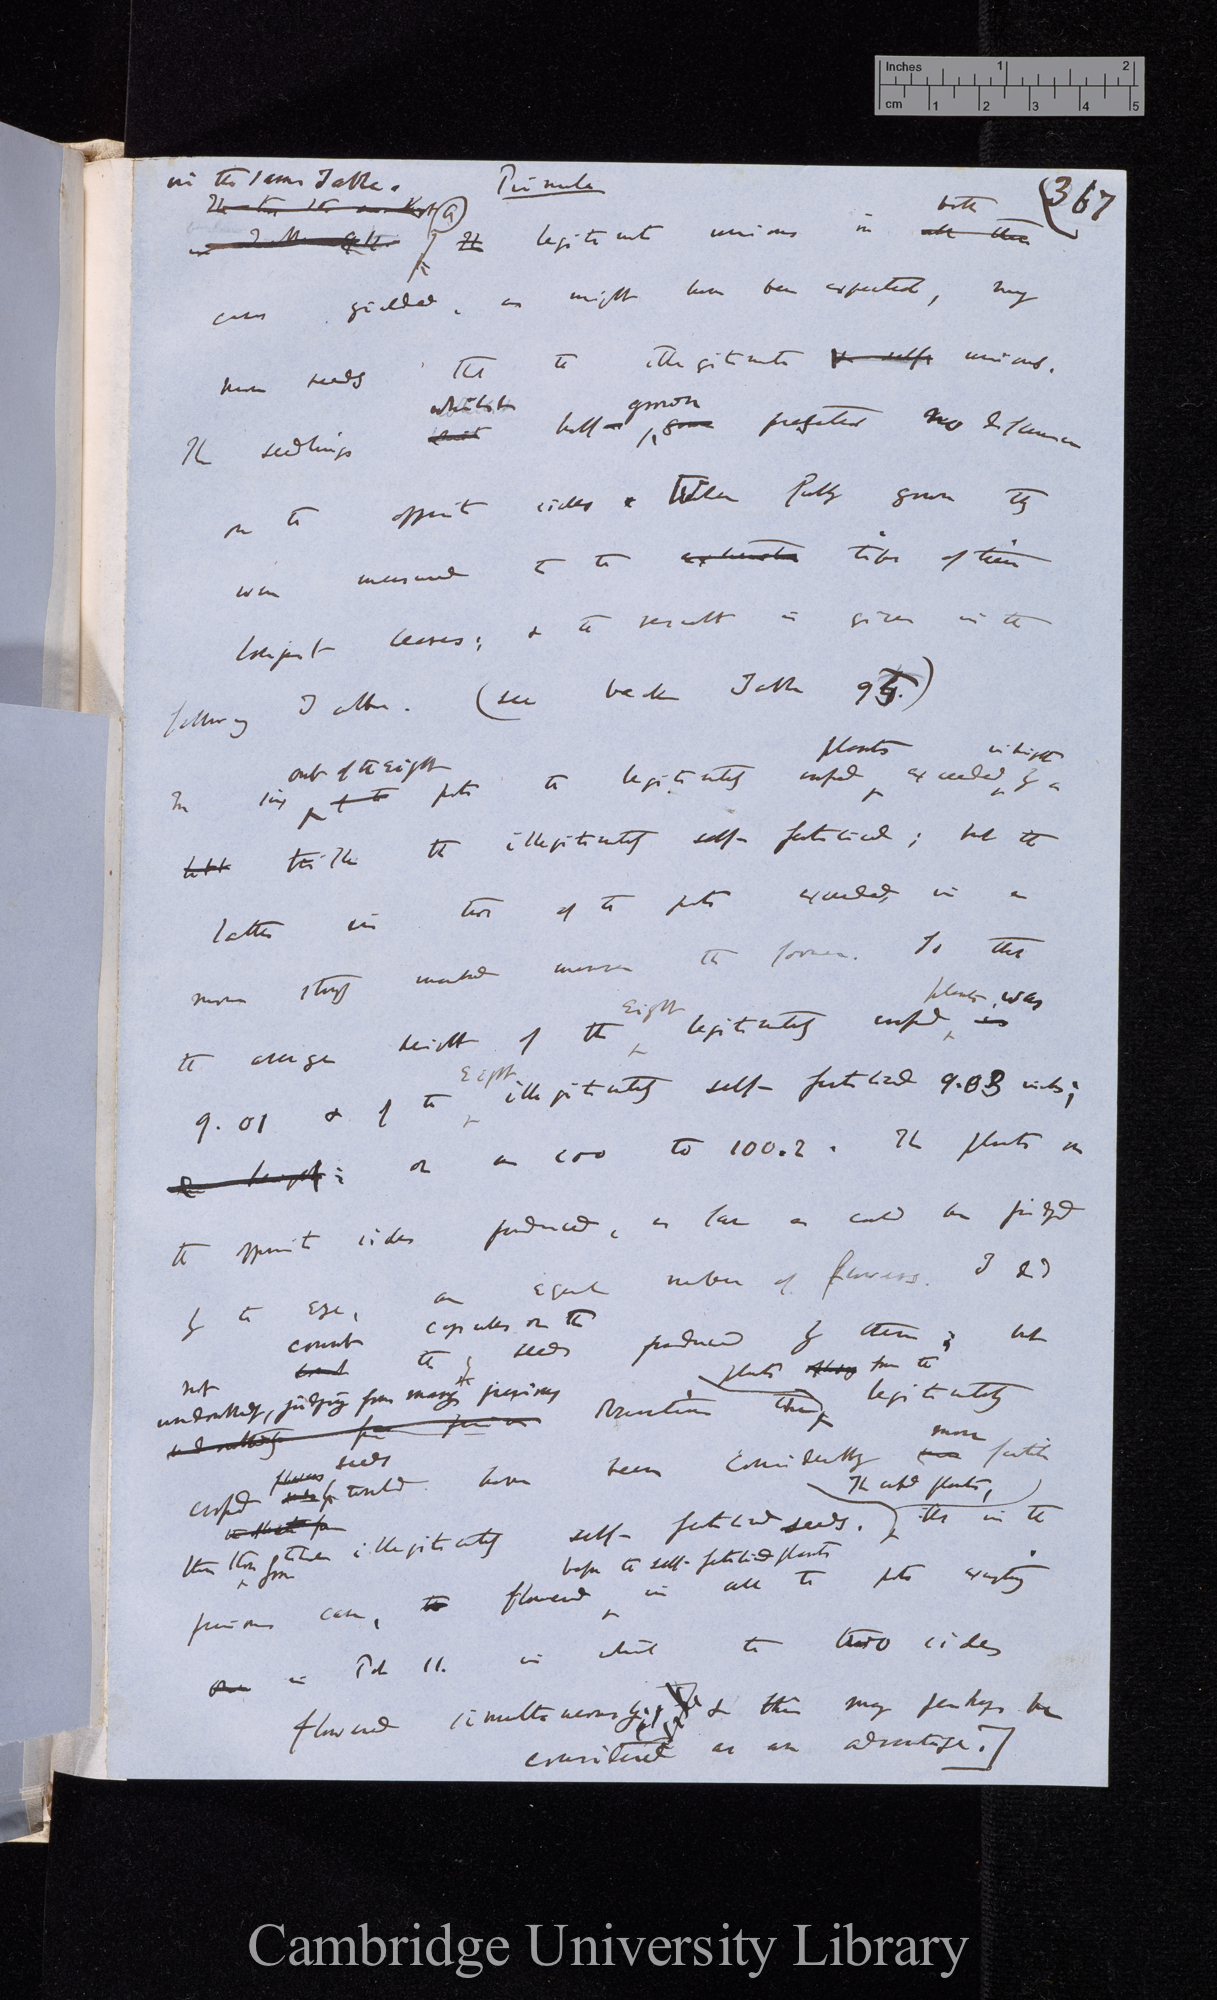 Inches 1 2
cm 1 2 3 4 5
in the same Table.
Primula
367
both
The legitimate unions in all these
cases yielded, as might have been expected, many
more seeds than the illegitimate & self- unions.
whilst grown
The seedlings half- grown presented no difference
on the opposite sides & When fully grown they
were measured to the extremities tips of their
longest leaves; & the result is given in the
following Table. (see back Table 95.)
out of the eight plants in height
In six of the pots the legitimately crossed exceeded by a
trifle the illegitimately self-fertilised; but the
latter in two of the pots exceeded, in a
more strongly marked manner the former. So that
Eight plants was
the average height of the legitimately crossed is
Eight
9.01 & of the illegitimately self-fertilised 9.03 inches;
in height; or as 100 to 100.2. The plants on
the opposite sides produced, as far as could be judged
by the eye, an equal number of flowers. I did
count capsules or the
not count the seeds produced by them; but
plants from the
undoubtedly, judging from many previous
observations legitimately
more
seeds
crossed would have been considerably fertile
The crossed plants,
than those from the illegitimately self-fertilised seeds. as in the
before the self-fertilised plants
previous case, flowered in all the pots excepting
in Pot II. in which the two sides
flowered simultaneously; & this may perhaps be
considered as an advantage.]
Cambridge University Library